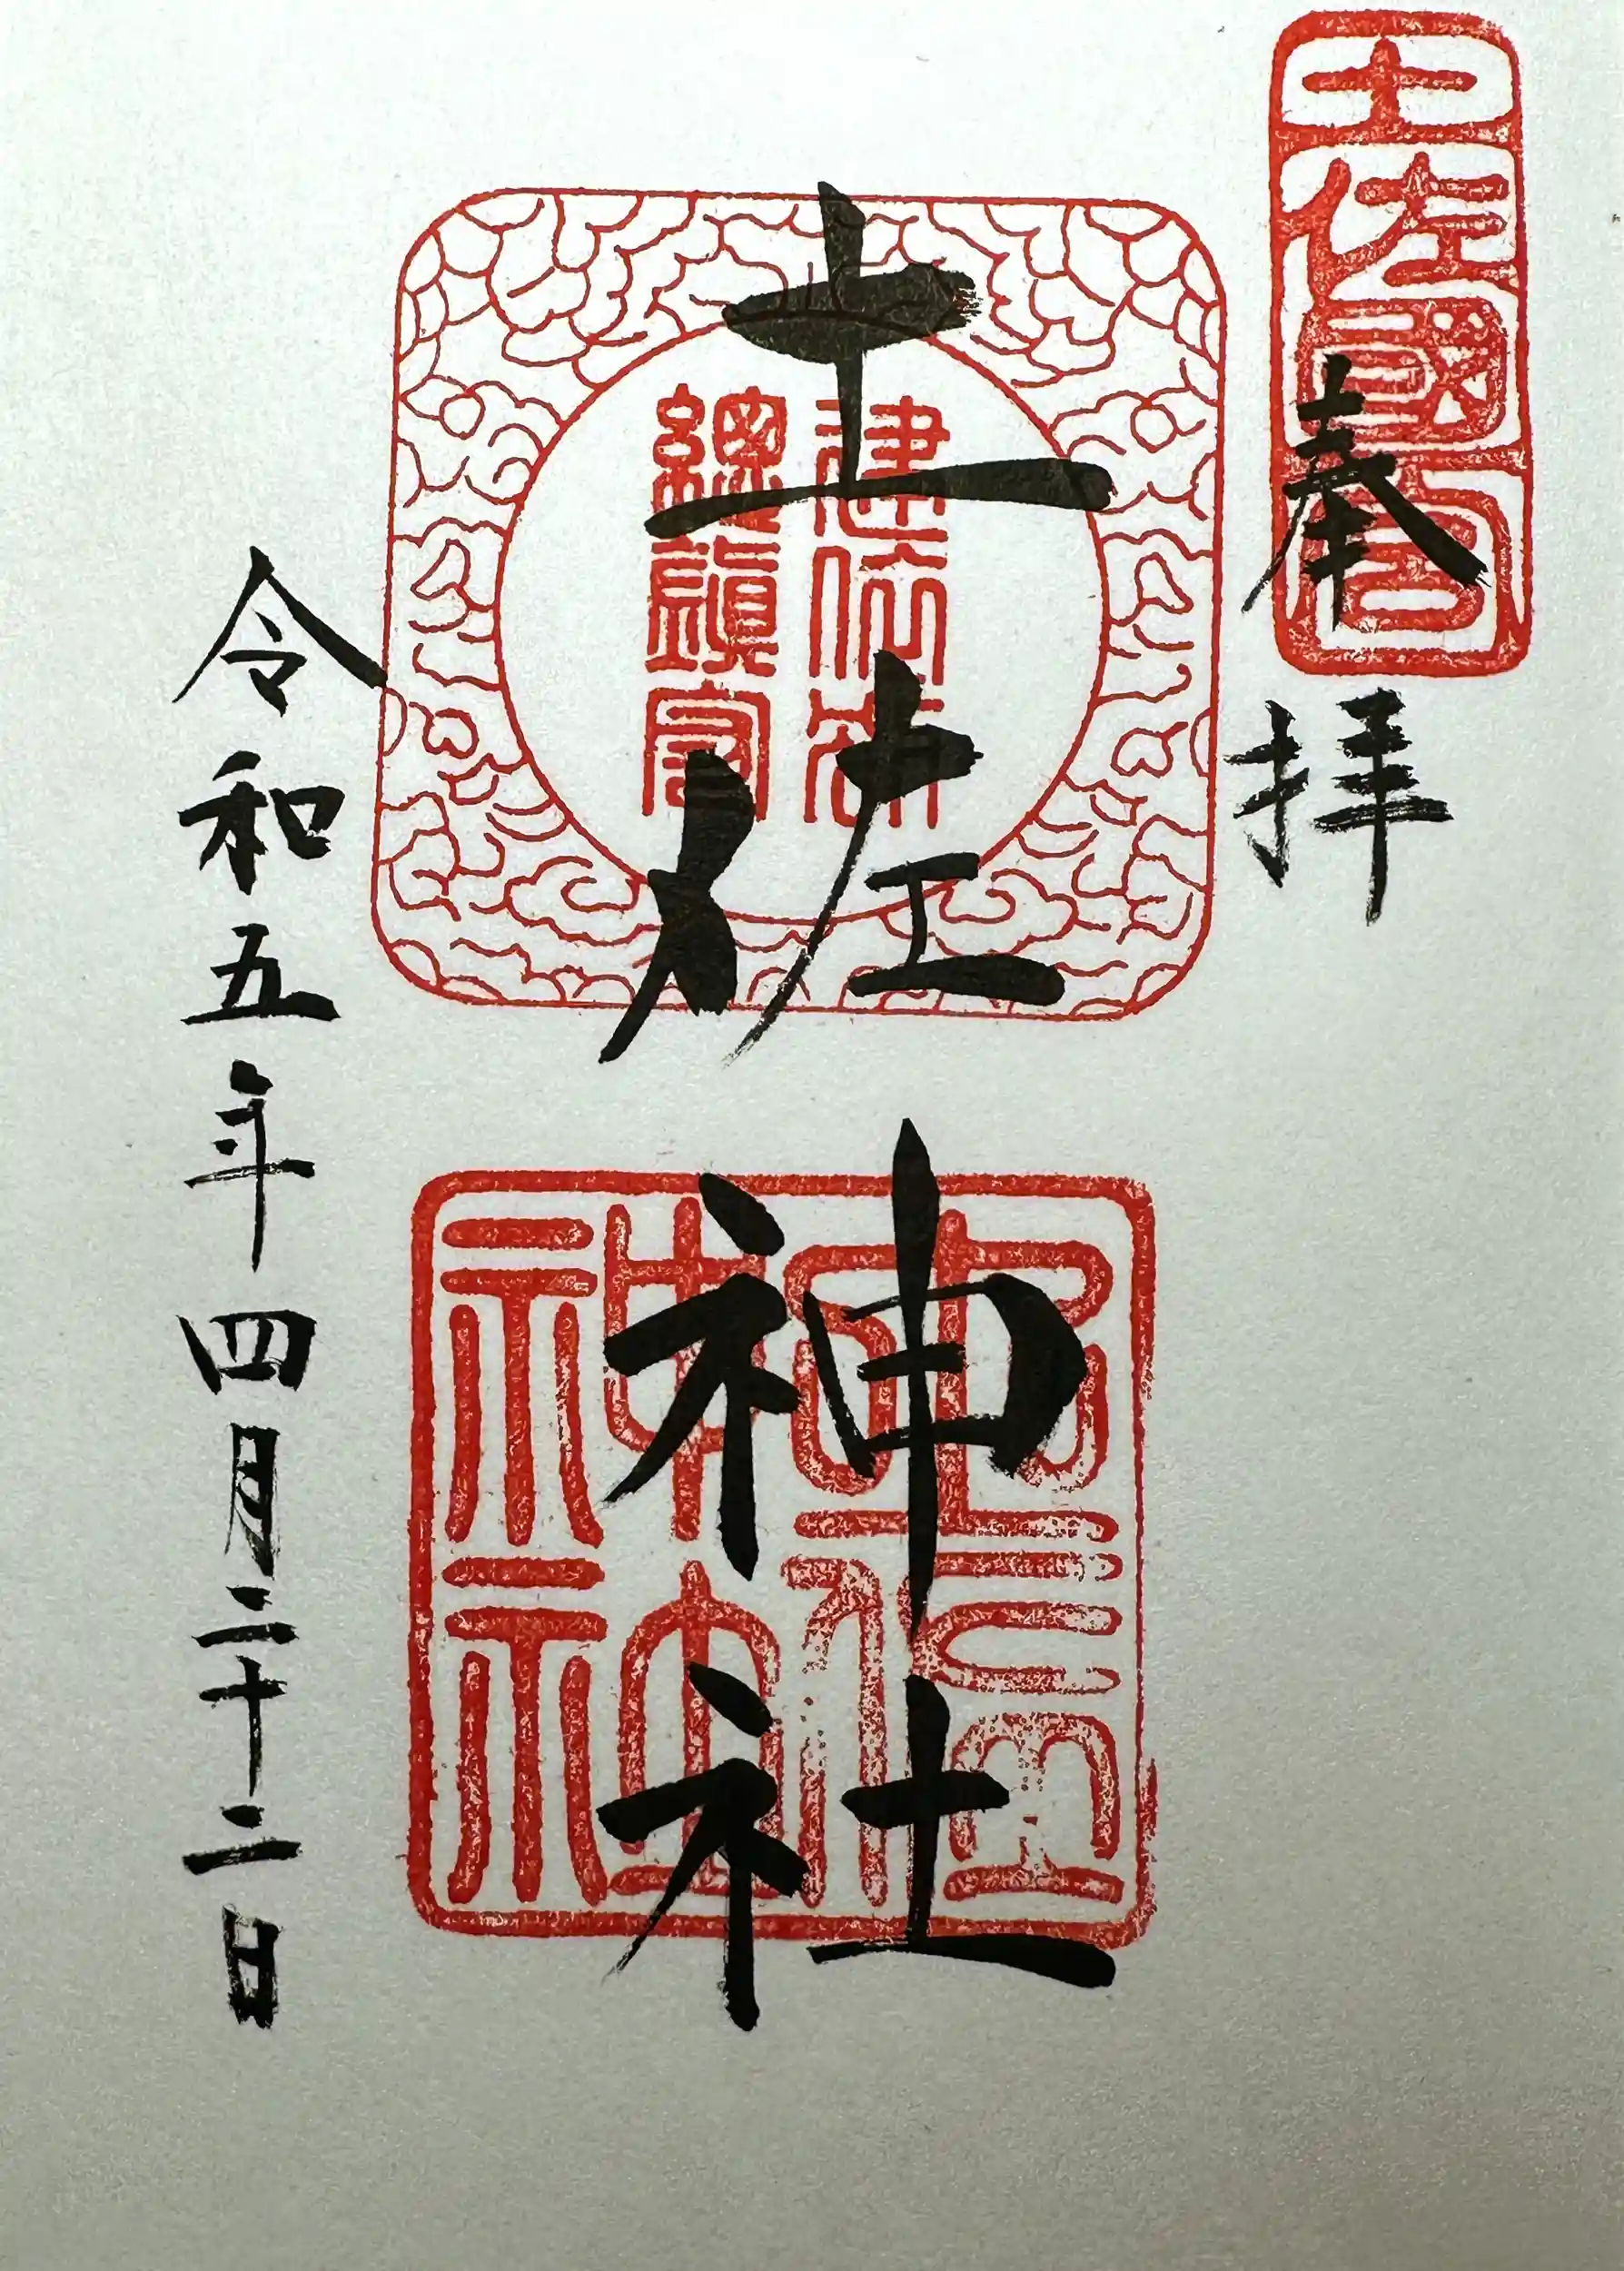 土佐國一宮
奉拝
建依別
總鎮守
土佐神社
令和五年四月二十二日